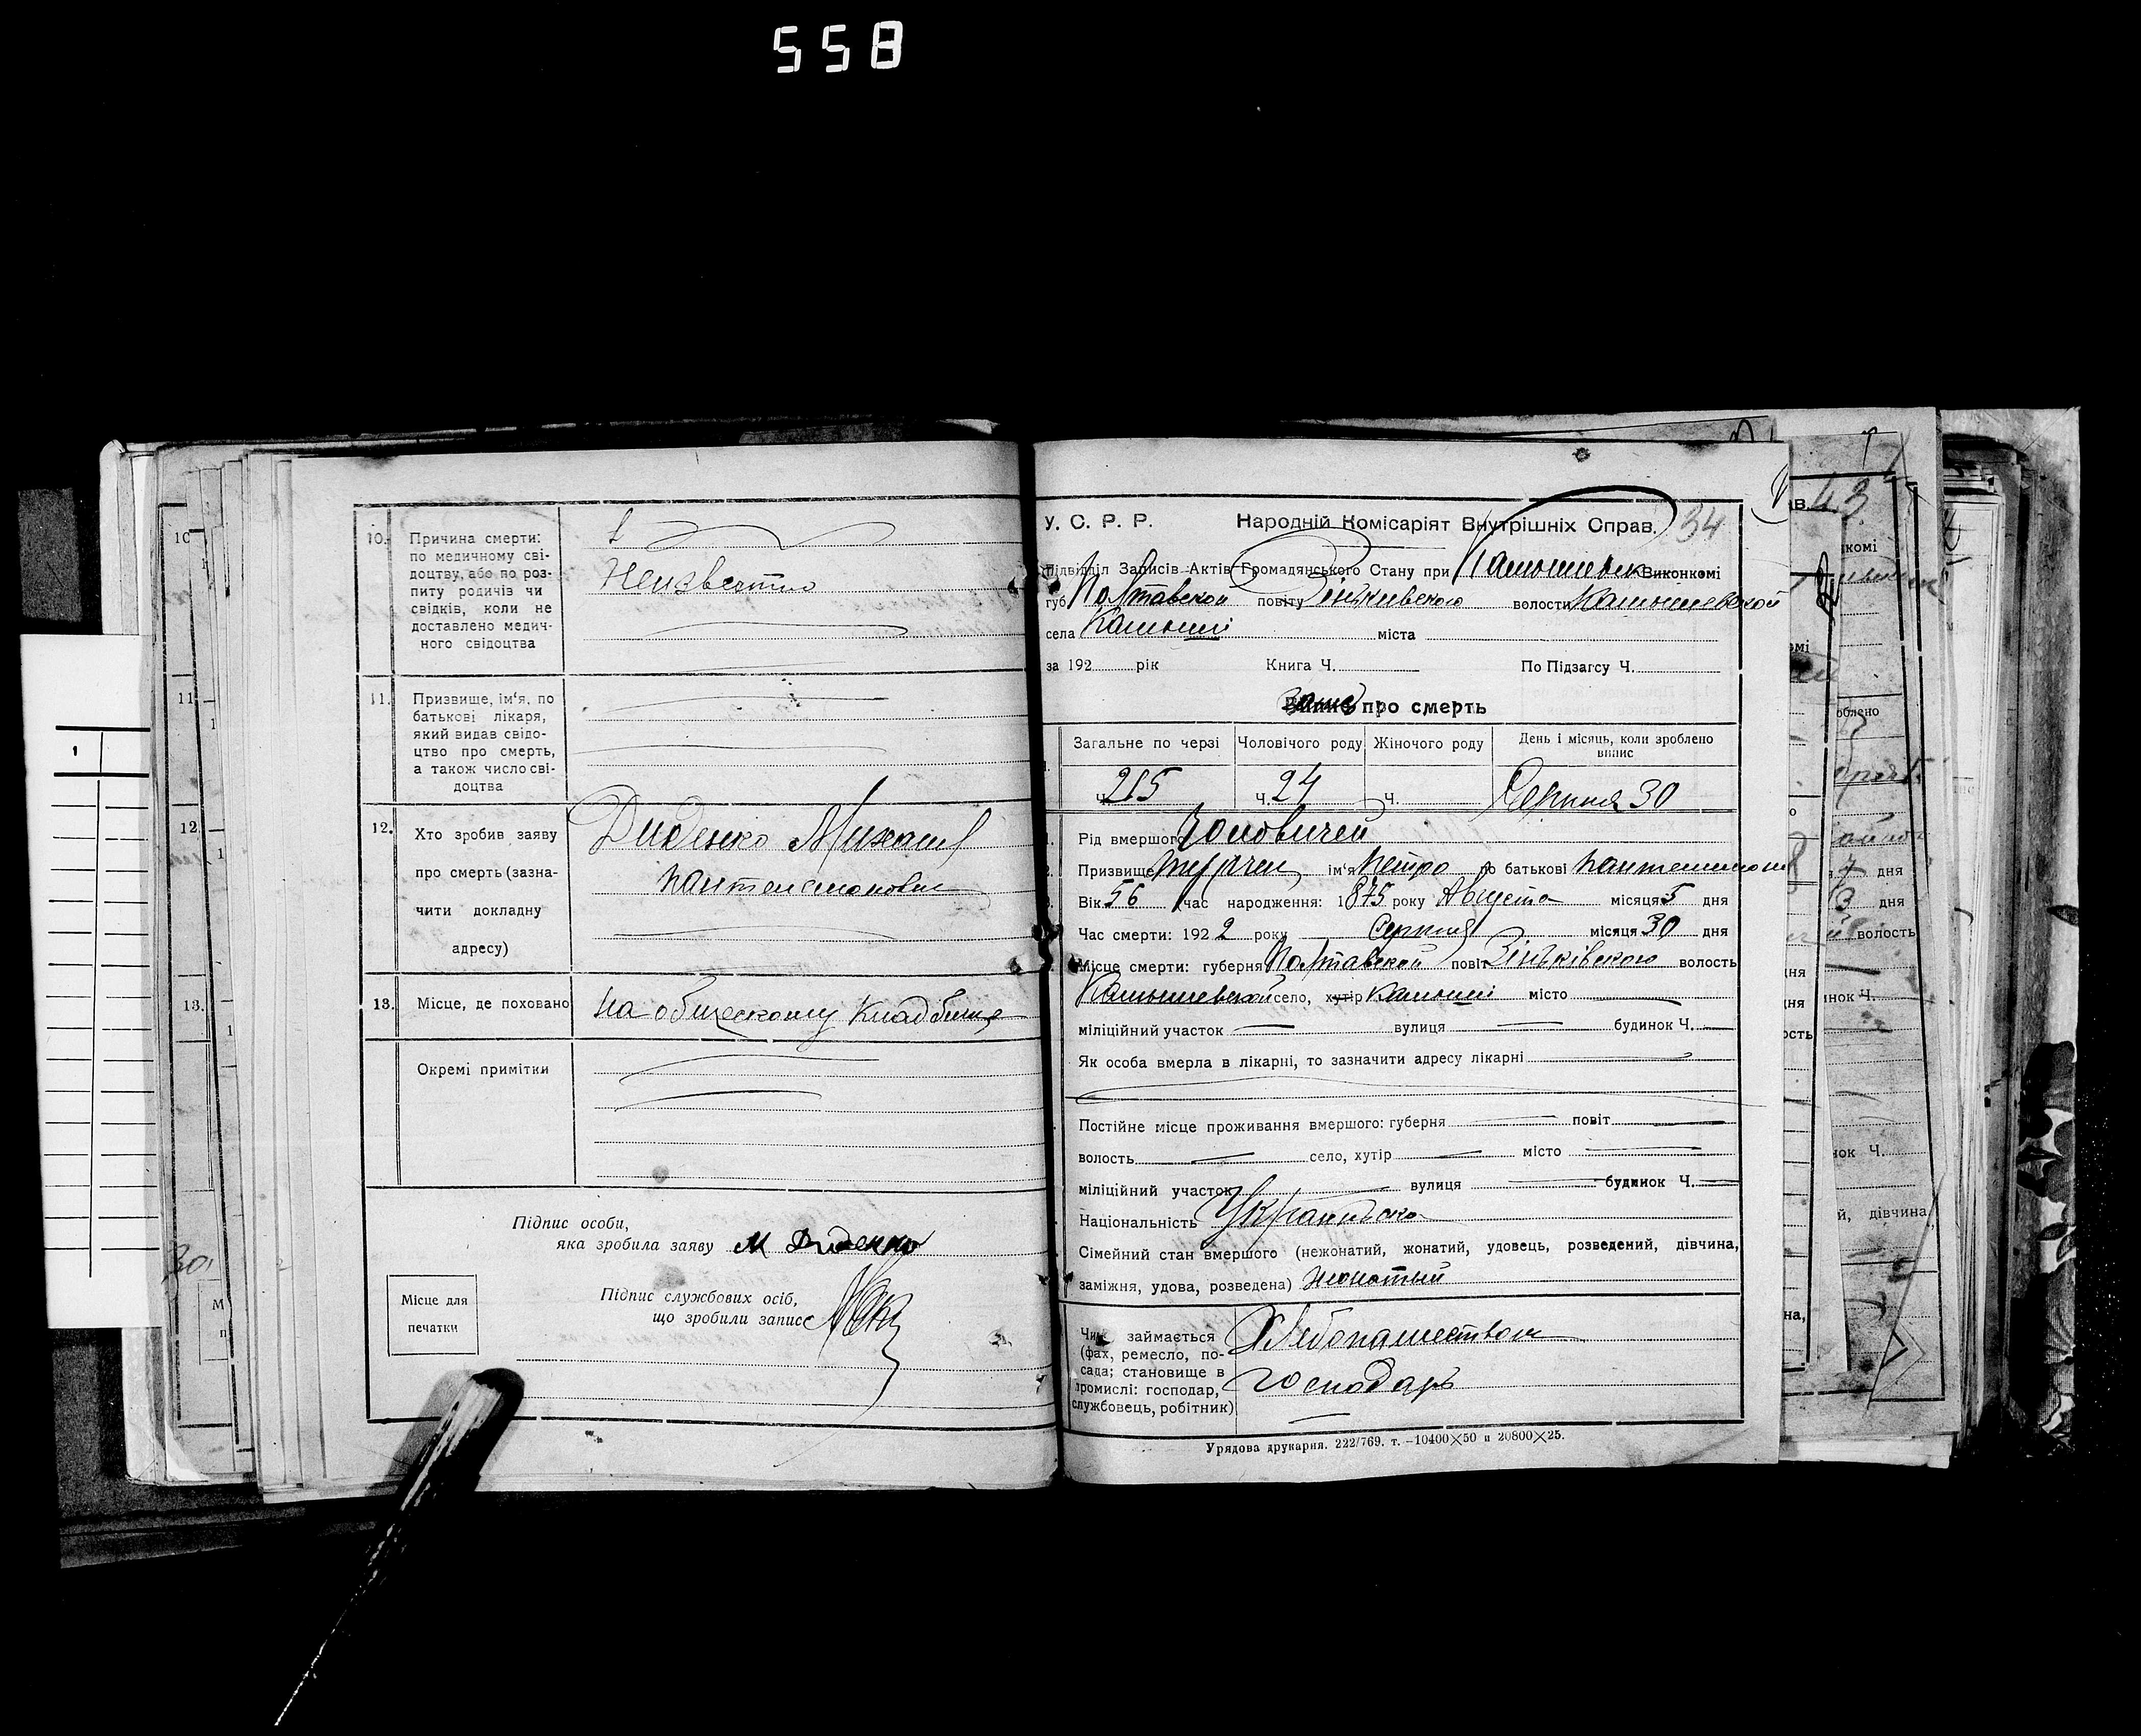 558
10. Причина смерти:
по медичному сві-
доцтву, або по роз-
питу родичів чи
свідків, коли не
доставлено медич-
ного свідоцтва
Неизвестно
11. Призвище, ім'я, по
батькові лікаря,
який видав свідо-
цтво про смерть,
а також число сві-
доцтва
12. Хто зробив заяву
про смерть (зазна-
чити докладну
адресу)
Диденко Михаил
Пантелемонович
13. Місце, де поховано
на общескому кладбище
Окремі примітки
Підпис особи,
яка зробила заяву М Диденко
Місце для
печатки
Підпис службових осіб,
що зробили запис
У. С. Р. Р. Народній Комісаріят Внутрішніх Справ. 34
Підвідділ Записів Актів Громадянського Стану при Виконкомі
губ. Полтавской повіту Зіньківского волости Камышевской
села Камыші міста
за 192 рік Книга Ч. По Підзагсу Ч.
про смерть
Загальне по черзі Чоловічого роду Жіночого роду День і місяць, коли зроблено
впис
Ч. 215 Ч. 24 Ч. Серпня 30
Рід вмершого Чоловичей
Призвище ім'я Петро по батькові
Вік 56 час народження: 1875 року Августа місяця 5 дня
Час смерти: 1922 року Серпня місяця 30 дня
Місце смерти: губерня Полтавской повіт Зіньківского волость
Камышевской село, хутір Камыші місто
міліційний участок вулиця будинок Ч.
Як особа вмерла в лікарні, то зазначити адресу лікарні
Постійне місце проживання вмершого: губерня повіт
волость село, хутір місто
міліційний участок вулиця будинок Ч.
Національність
Сімейний стан вмершого (нежонатий, жонатий, удовець, розведений, дівчина,
заміжня, удова, розведена) жонатый
Чим займається
(фах, ремесло, по-
сада; становище в
промислі: господар,
службовець, робітник)
Хлебопашеством
господарь
Урядова друкарня. 222/769. т. –10400×50 и 20800×25.